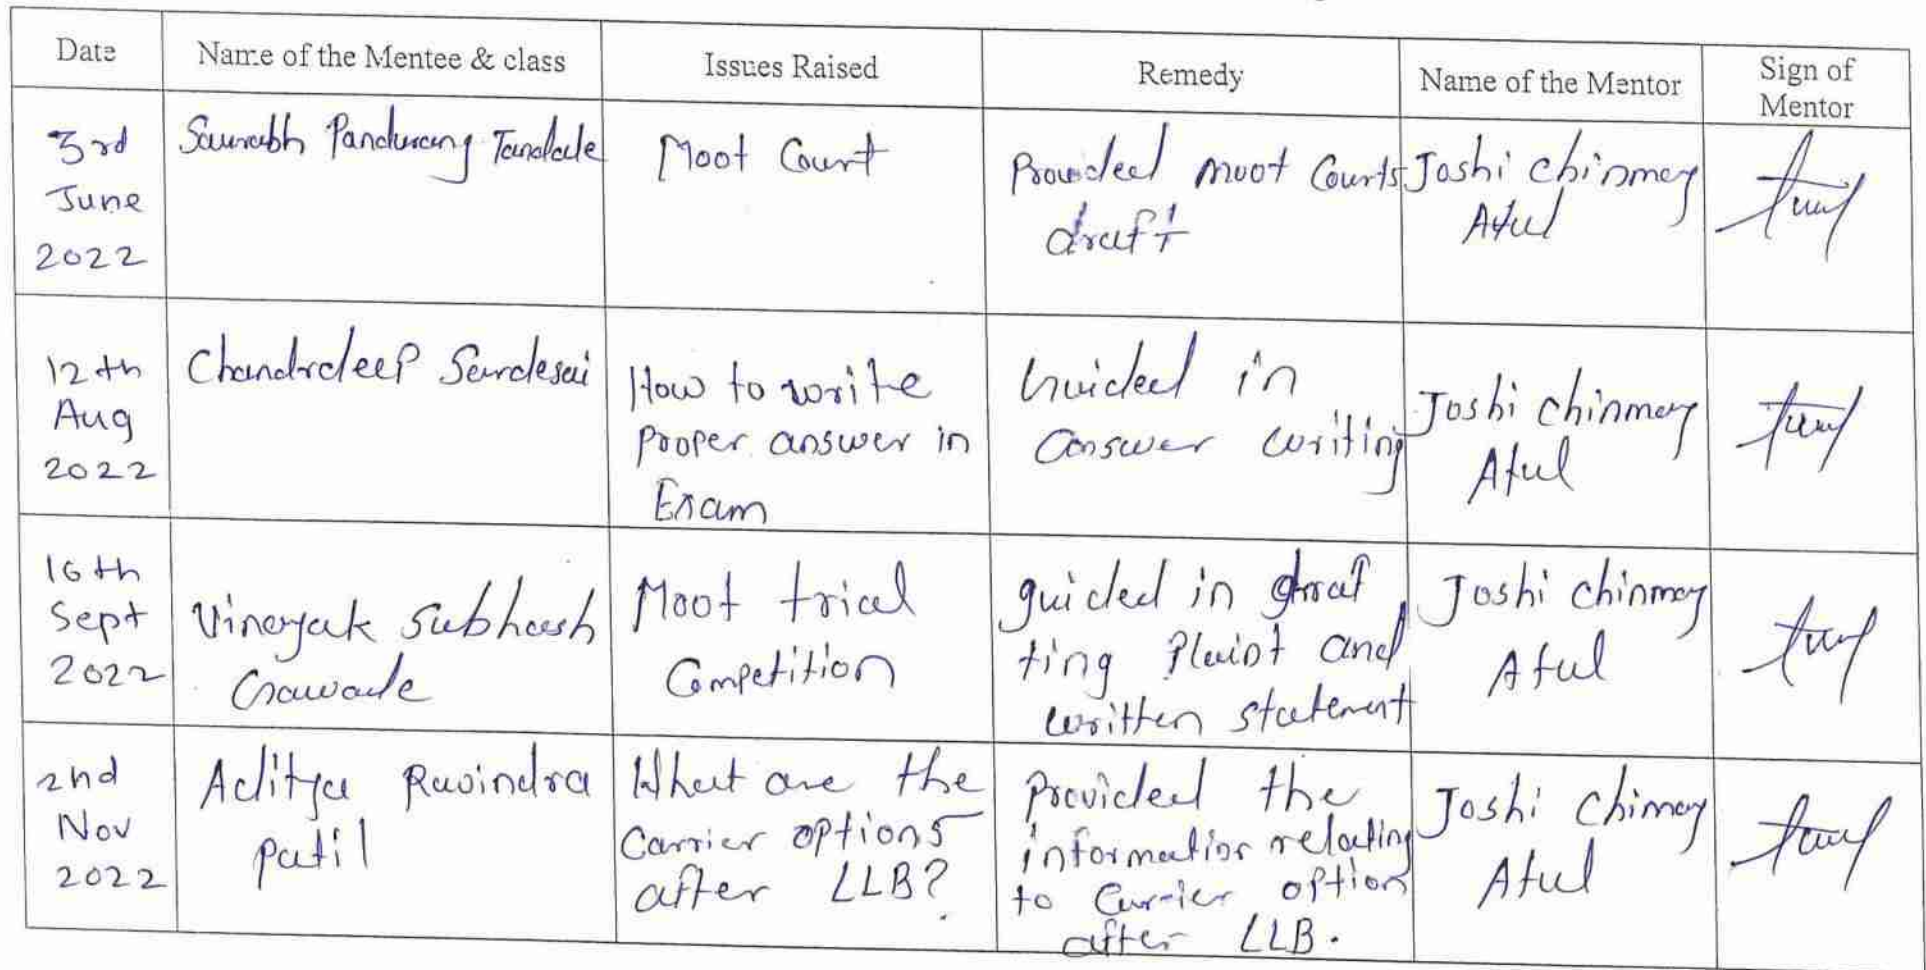 Date
Name of the Mentee & class
Issues Raised
Remedy
Name of the Mentor
Sign of
Mentor
3rd
June
2022
Saurabh Pandurang Tandale
Moot Court
Provided moot Courts
draft
Joshi Chinmay
Atul
12th
Aug
2022
Chandrdeep Sardesai
How to write
proper answer in
Exam
Guided in
answer writing
Joshi Chinmay
Atul
16th
Sept
2022
Vinayak Subhash
Gawade
Moot trial
Competition
guided in draf
ting Plaint and
written statement
Joshi Chinmay
Atul
2nd
Nov
2022
Aditya Ravindra
Patil
What are the
Carrier options
after LLB?
Provided the
information relating
to Carrier option
after LLB.
Joshi Chimay
Atul